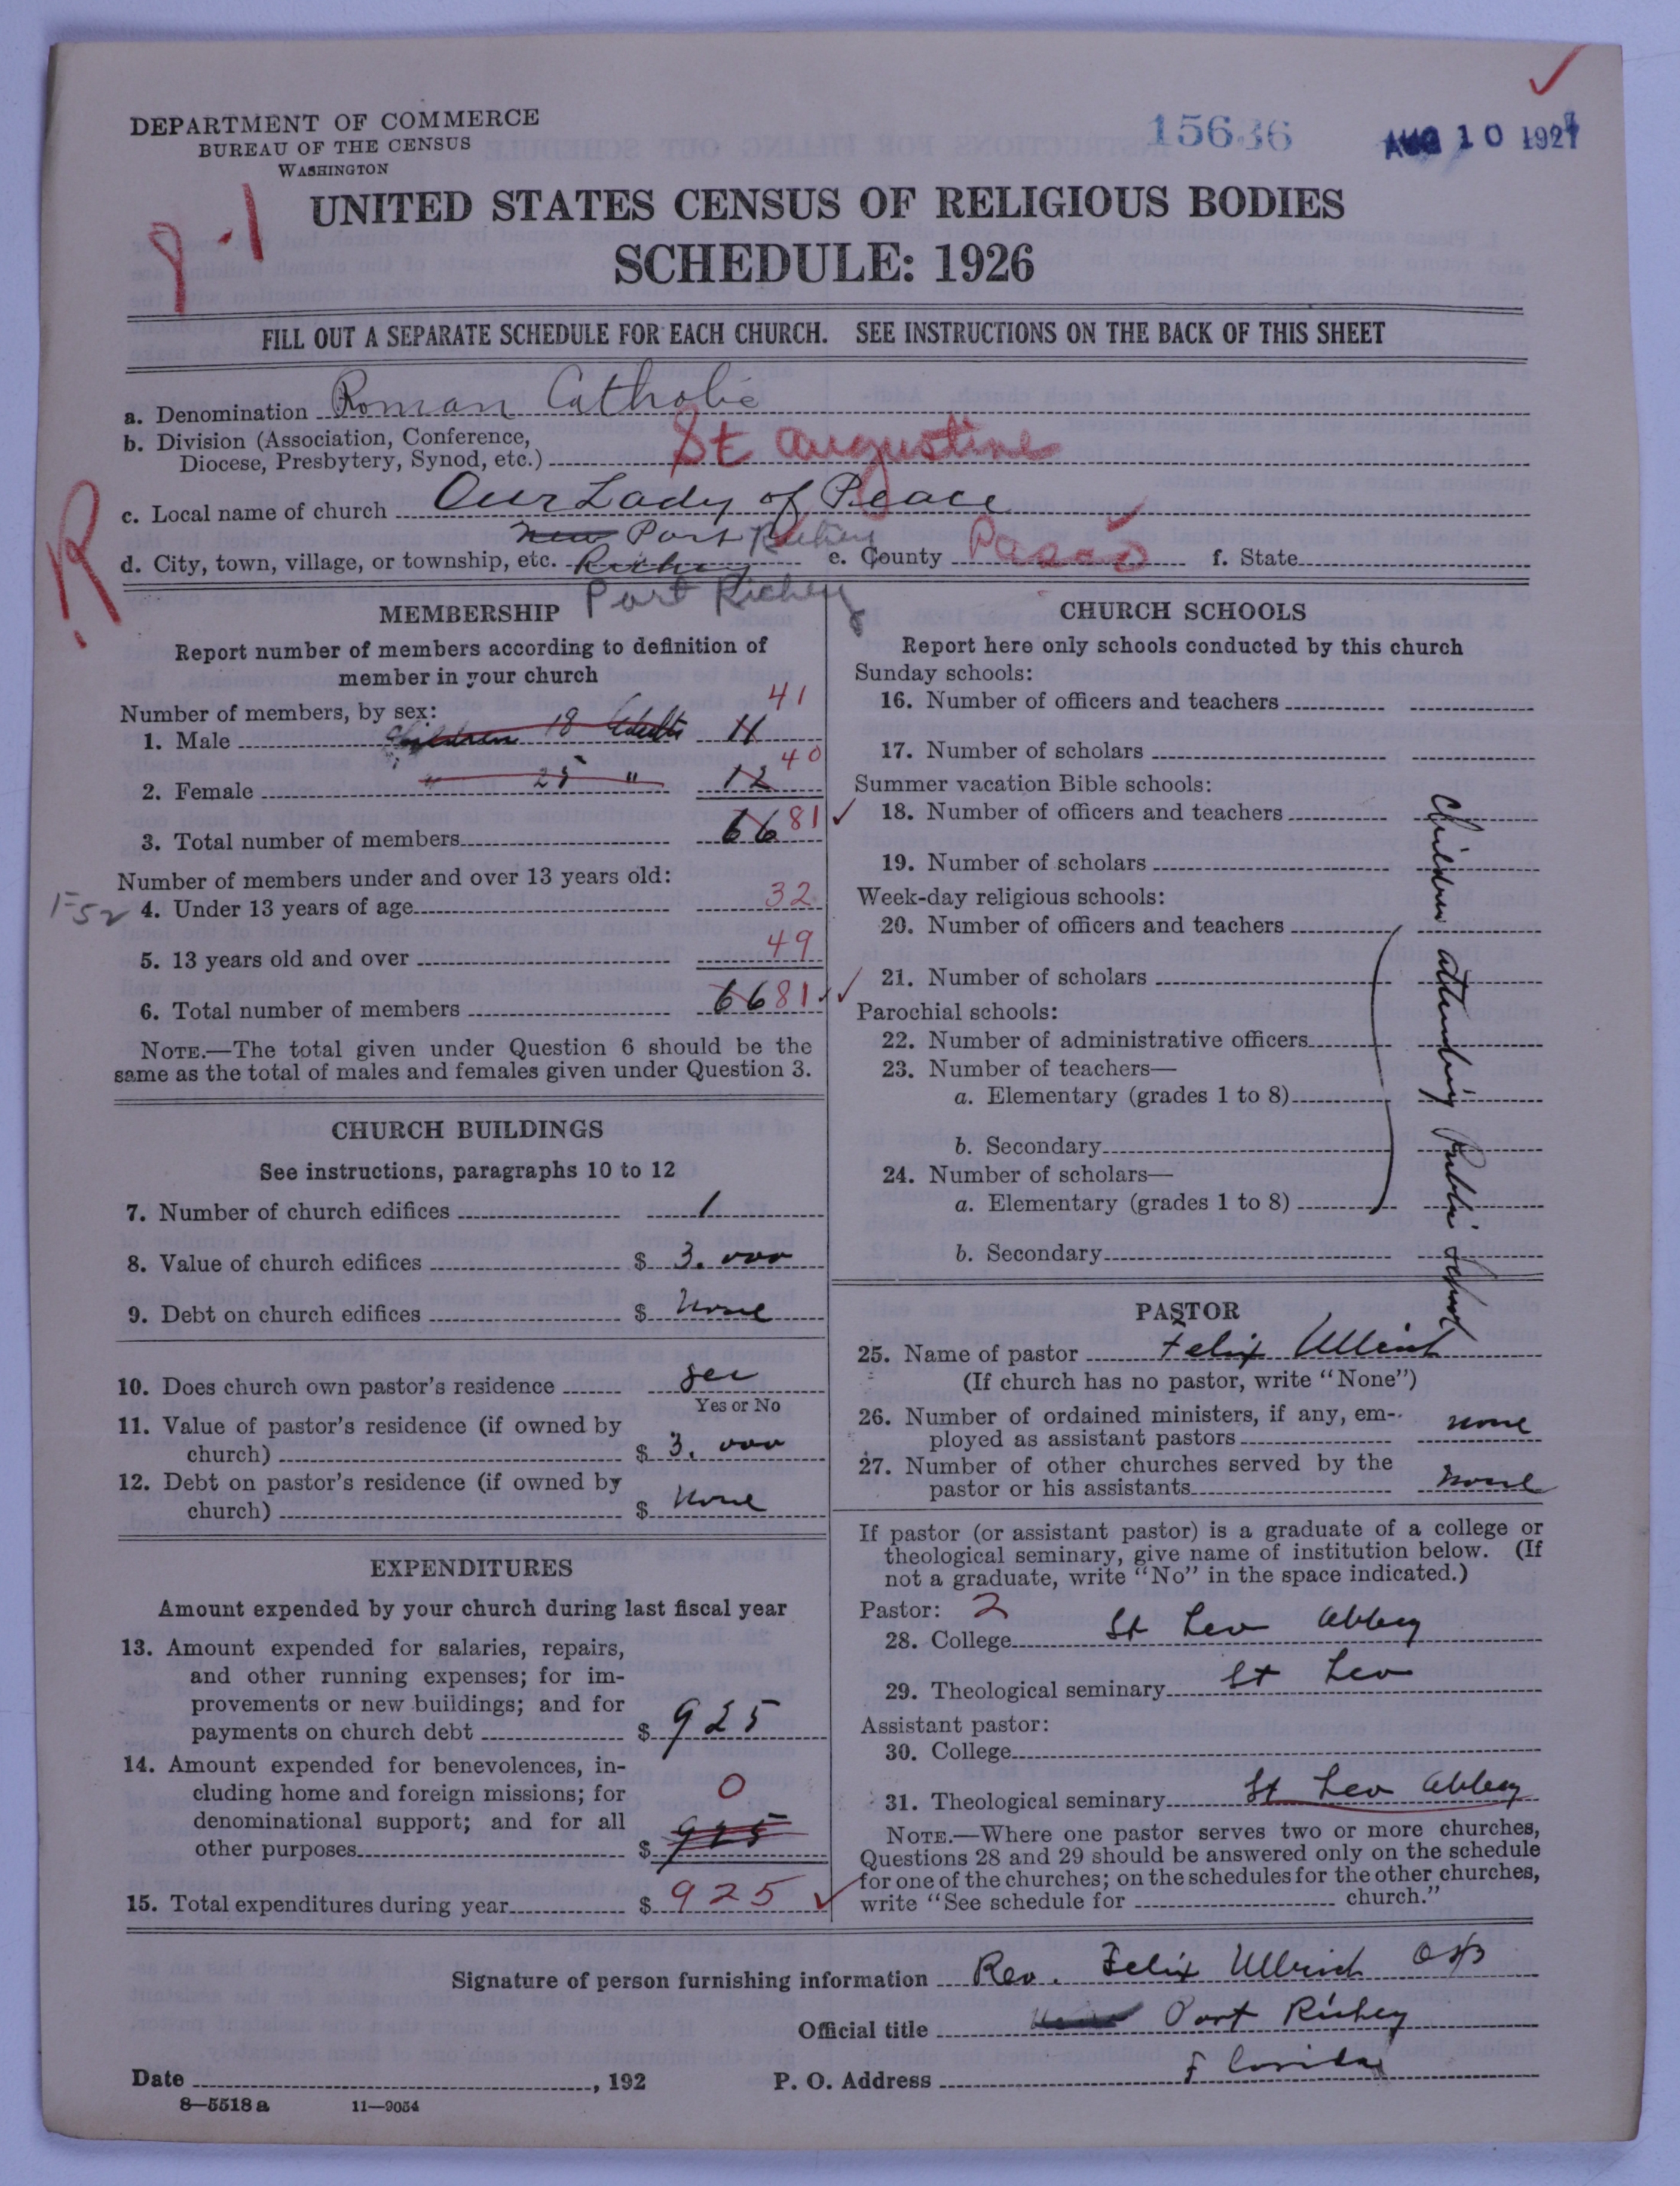 DEPARTMENT OF COMMERCE
BUREAU OF THE CENSUS
WASHINGTON
15636
AUG 10 1927
9-1
UNITED STATES CENSUS OF RELIGIOUS BODIES
SCHEDULE: 1926
FILL OUT A SEPARATE SCHEDULE FOR EACH CHURCH. SEE INSTRUCTIONS ON THE BACK OF THIS SHEET
a. Denomination Roman Catholic
b. Division (Association, Conference, Diocese, Presbytery, Synod, etc.) St Augustine
R
c. Local name of church Our Lady of Peace
New Port Richey
d. City, town, village, or township, etc. Richey e. County Pasco f. State
Port Richey
MEMBERSHIP
Report number of members according to definition of
member in your church
Number of members, by sex:
41
1. Male Children 18 Adults 11
40
2. Female " 25 " 12
3. Total number of members 66 81
Number of members under and over 13 years old:
1-52
4. Under 13 years of age 32
5. 13 years old and over 49
6. Total number of members 66 81
NOTE.—The total given under Question 6 should be the
same as the total of males and females given under Question 3.
CHURCH BUILDINGS
See instructions, paragraphs 10 to 12
7. Number of church edifices 1
8. Value of church edifices $ 3.000
9. Debt on church edifices $ None
10. Does church own pastor's residence yes
Yes or No
11. Value of pastor's residence (if owned by
church) $ 3.000
12. Debt on pastor's residence (if owned by
church) $ None
EXPENDITURES
Amount expended by your church during last fiscal year
13. Amount expended for salaries, repairs,
and other running expenses; for im-
provements or new buildings; and for
payments on church debt $ 925
14. Amount expended for benevolences, in-
cluding home and foreign missions; for
0
denominational support; and for all
other purposes $ 925
15. Total expenditures during year $ 925
CHURCH SCHOOLS
Report here only schools conducted by this church
Sunday schools:
16. Number of officers and teachers
17. Number of scholars
Summer vacation Bible schools:
18. Number of officers and teachers
19. Number of scholars
Week-day religious schools:
20. Number of officers and teachers
21. Number of scholars
Parochial schools:
22. Number of administrative officers
23. Number of teachers—
a. Elementary (grades 1 to 8)
b. Secondary
24. Number of scholars—
a. Elementary (grades 1 to 8)
b. Secondary
Children attending Public School
PASTOR
25. Name of pastor Felix Ullrich
(If church has no pastor, write "None")
26. Number of ordained ministers, if any, em-
ployed as assistant pastors none
27. Number of other churches served by the
pastor or his assistants none
If pastor (or assistant pastor) is a graduate of a college or
theological seminary, give name of institution below. (If
not a graduate, write "No" in the space indicated.)
Pastor: 2
28. College St Leo Abbey
29. Theological seminary St Leo
Assistant pastor:
30. College
31. Theological seminary St Leo Abbey
NOTE.—Where one pastor serves two or more churches,
Questions 28 and 29 should be answered only on the schedule
for one of the churches; on the schedules for the other churches,
write "See schedule for church."
Signature of person furnishing information Rev. Felix Ullrich OSB
Official title Port Richey
Date , 192 P. O. Address Florida
8—5518a 11—9054